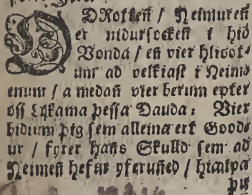 DRotteñ / Heimureñ
er nidursockeñ i hid
Vonda / eñ vier hliot-
um ad velkiast i Heimi
enum / a medañ vier berum epter
oss Lykama þessa Dauda: Vier
bidium þig sem alleina ert Good-
ur / fyrer hañs Skulld sem ad
Heimeñ hefur yferuñed / hialpa